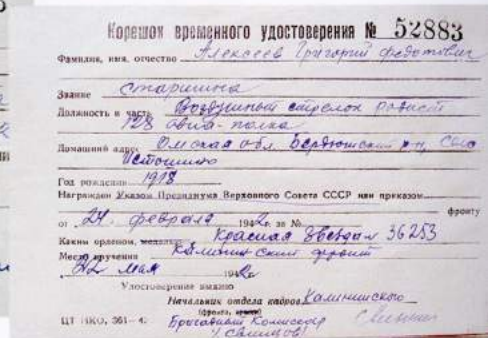 Корешок временного удостоверения № 52883
Фамилия, имя, отчество Алексеев Григорий Федотович
Звание старшина
Должность и часть Воздушный стрелок радист
128 авиа-полка
Домашний адрес Омская обл. Бердюжский р-н, село
Истошино
Год рождения 1918
Награжден Указом Президиума Верховного Совета СССР или приказом
фронту
от 24 февраля 1942г. за №
Каким орденом, медалью Красная Звезда № 36253
Место вручения Калининский фронт
мая 1942г
Удостоверение выдано
Начальник отдела кадров Калининского
(фронта, армии)
Бригадный Комиссар
ЦТ НКО, 361—4
/Свинцов/